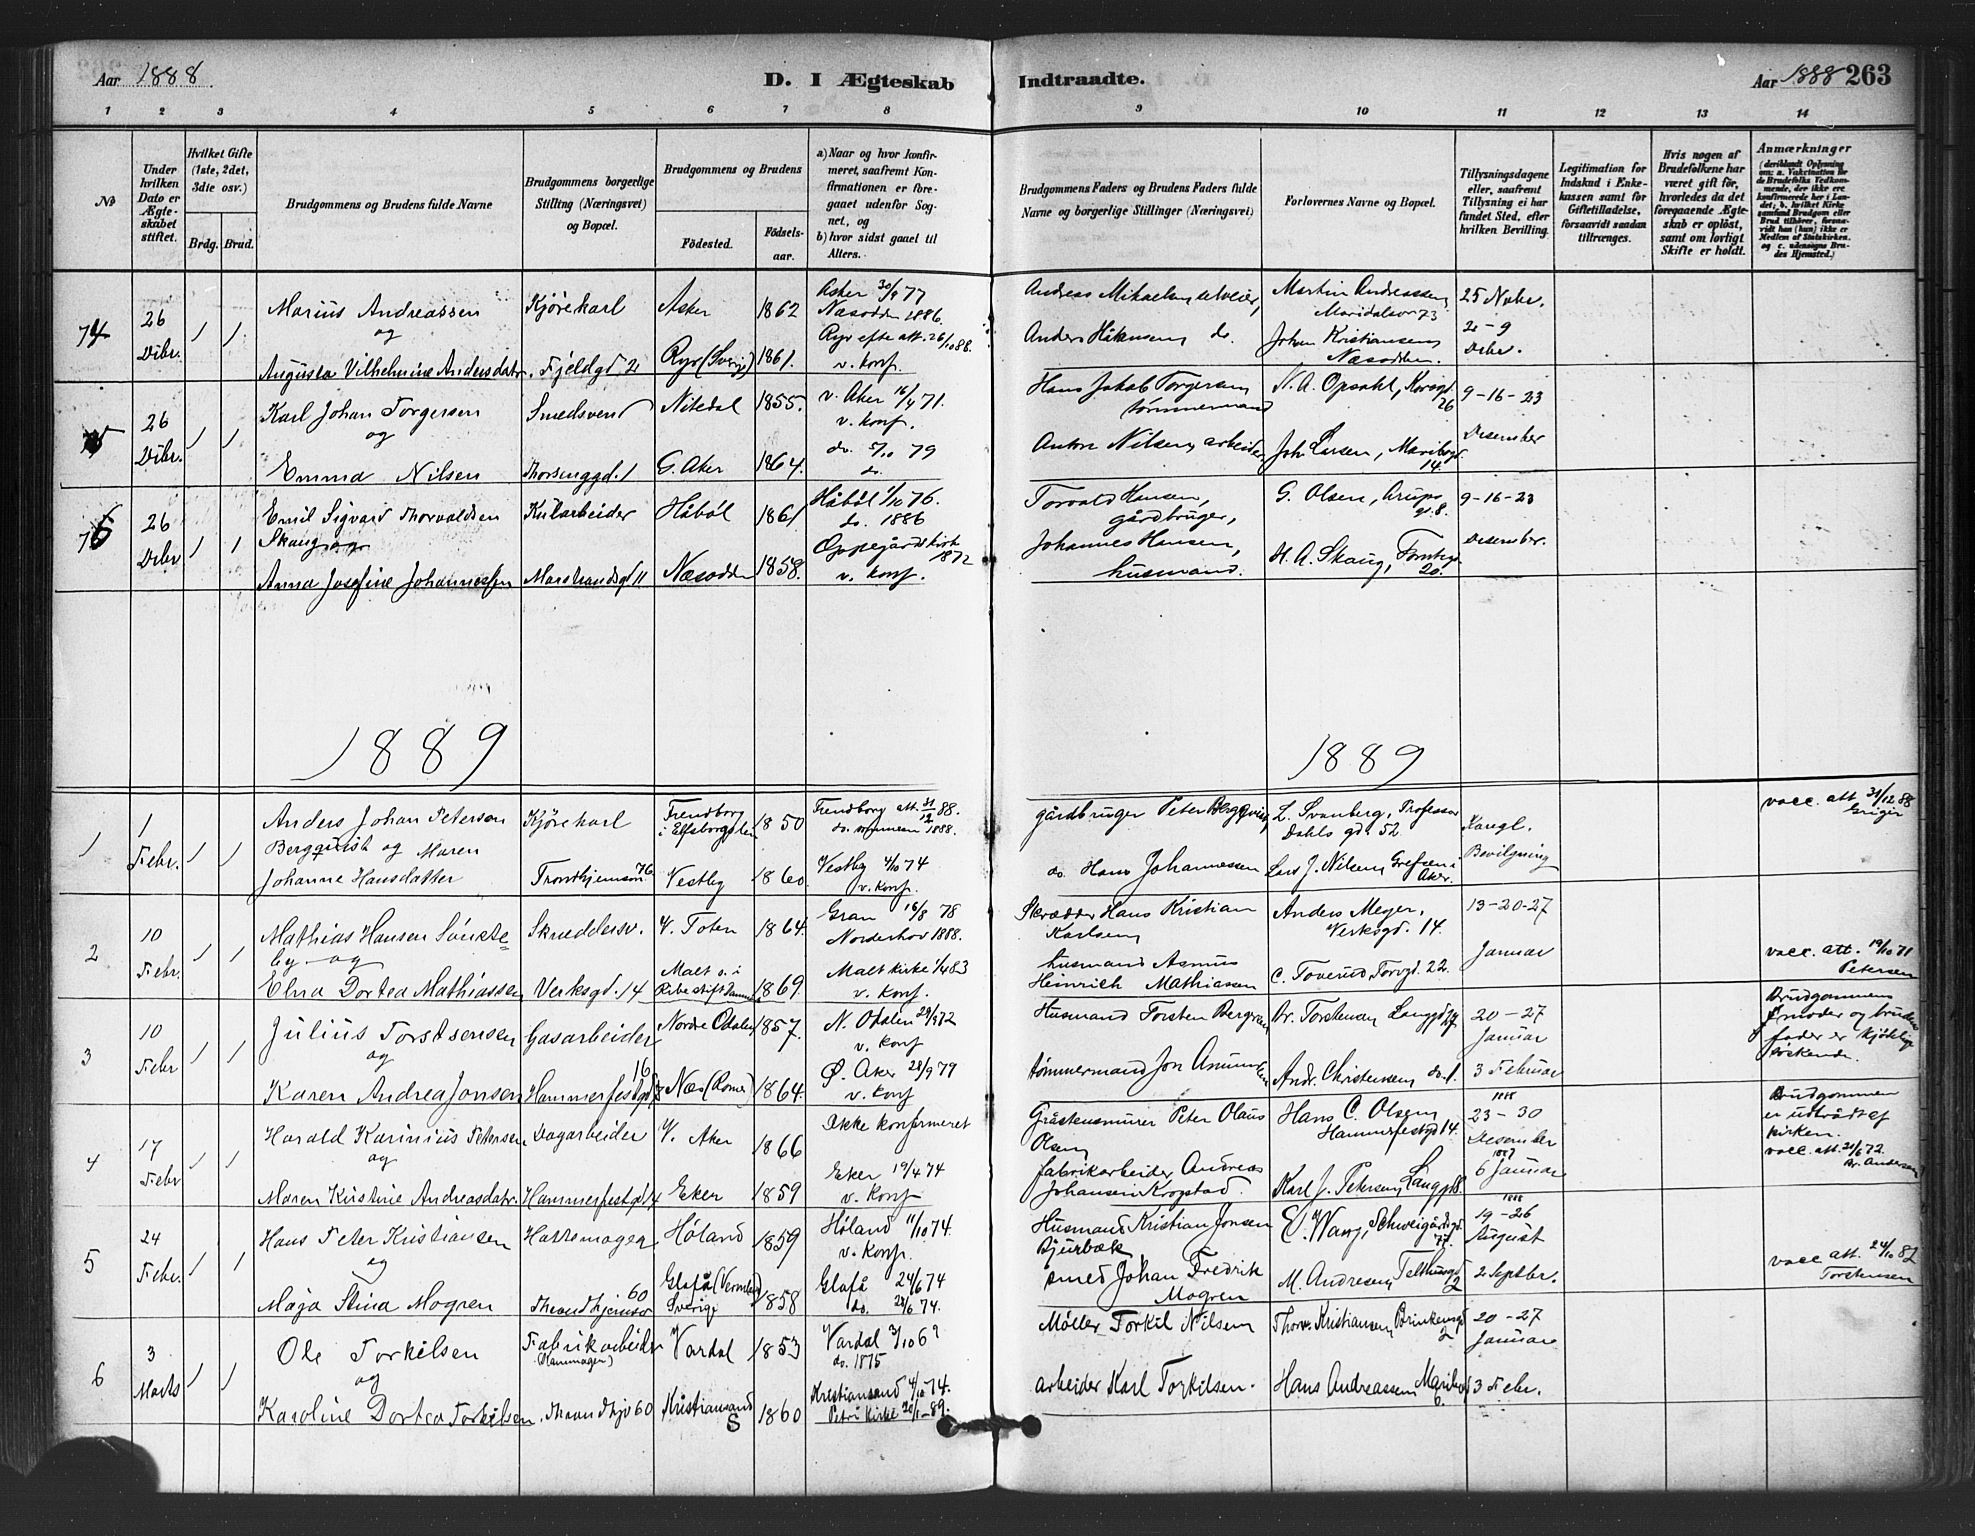 Aar 1888
D. I Ægteskab Indtraadte.
Aar 1888 263
1 2 3 4 5 6 7 8 9 10 11 12 13 14
No
Under hvilken Dato er Ægteskabet stiftet.
Hvilket Gifte (1ste, 2det, 3die osv.)
Brdg. Brud.
Brudgommens og Brudens fulde Navne
Brudgommens borgerlige Stilling (Næringsvei) og Bopæl.
Brudgommens og Brudens
Födested. Födselsaar.
a) Naar og hvor konfirmeret, saafremt Konfirmationen er foregaaet udenfor Sognet, og
b) hvor sidst gaaet til Alters.
Brudgommens Faders og Brudens Faders fulde Navne og borgerlige Stillinger (Næringsvei)
Forlovernes Navne og Bopæl.
Tillysningsdagene eller, saafremt Tillysning ei har fundet Sted, efter hvilken Bevilling.
Legitimation for Indskud i Enkekassen samt for Giftetilladelse, forsaavidt saadan tiltrænges.
Hvis nogen af Brudefolkene har været gift för, hvorledes da det foregaaende Ægteskab er oplöst, samt om lovligt Skifte er holdt.
Anmærkninger
74 26 Dcbr. 1 1
Marius Andreassen
og
Augusta Vilhelmine Andersdatr.
Kjörekarl
Fjeldgd. 2
Asker 1862
Ryr (Sverige) 1861.
Asker 30/9 77
Næsodden 1886.
Ryr efter att. 26/10 88.
v. konf.
Andreas Mikaelsen
Anders Håkensen do.
Martin Andreassen
Maridalsv 73
Johan Kristiansen
Næsodden.
25 Novbr.
2-9
Dcbr.
75 26 Dcbr. 1 1
Karl Johan Torgersen
og
Emma Nilsen
Smedsvend
Thorsenggd. 1
Nitedal 1855.
G. Aker 1864.
v. Aker 16/4 71.
v. konf.
do. 5/10 79
do.
Hans Jakob Torgersen
tömmermand
Anton Nilsen, arbeider
N. A. Opsahl, Korsgd. 26
Joh. Larsen, Maribogd. 14.
9-16-23
Desember
76 26 Dcbr 1 1
Emil Sigvard Thorvaldsen
Skaug og
Anna Josefine Johannessen
Kularbeider
Marstrandsgd 11
Håböl 1861
Næsodden 1858.
Håböl 1/10 76.
do. 1886
Oppegårds kirke 1872
v. konf.
Torvald Hansen,
gårdbruger,
Johannes Hansen,
husmand.
G. Olsen, Arups g. 8.
H. A. Skaug, 20.
9-16-23
Desember.
1889 1889
1 1 Febr. 1 1
Anders Johan Petersen
Bergquist og Maren
Johanne Hansdatter
Kjörekarl
Trondhjemsv 76
i Elfsborgslen 1850
Vestby 1860
att. 31/12 88.
do. sommeren 1888.
Vestby 4/10 74
v. konf.
gårdbruger Peter Bergqvist
do. Hans Johannessen
L. Svanberg, Professor
Dahls gd. 52
Lars J. Nilsen, Grefsen i
Aker.
Kongl.
Bevilgning
vacc. att. 31/12 88
2 10 Febr. 1 1
Mathias Hansen
by og
Elna Dortea Mathiassen
Skreddersv.
Verksgd. 14
V. Toten 1864.
Malt s. i
Ribe stift Danm. 1869.
Gran 16/8 78
Norderhov 1888.
Malt kirke 1/4 83
v. konf.
Skrædder Hans Kristian
Karlsen
husmand Asmus
Heinrich Mathiassen
Anders Meyer,
Verksgd. 14.
C. Toverud, Torvgd. 22.
13-20-27
Januar
vacc. att. 19/10 71
Petersen
3 10 Febr 1 1
Julius Torstensen
og
Karen Andrea Jonsen
Gasarbeider
Hammerfestgd. 16
Nordre Odalen 1857.
Næs (Romer.) 1864.
N. Odalen 29/9 72
v. konf
Ø. Aker 28/9 79
v. konf
Husmand Torsten
tömmermand Jon Amundsen
Br. Torstensen, Langgd
Andr. Christensen do. 1.
20-27
Januar
3 Februar
Brudgommens
moder og brudens
fader er kjödelige
söskende.
4 17 Febr 1 1
Harald Karinius Petersen
og
Maren Kirstine Andreasdatr.
Dagarbeider
Hammerfestgd 14
V. Aker 1866
Eker 1859
Ikke konfirmeret
Eker 19/4 74
v. konf
Gråstensmurer Peter Olaus
Olsen
fabrikarbeider Andreas
Johansen Krogstad.
Hans C. Olsen
Hammerfestgd 14.
Karl J. Petersen, Langgd 8.
1888
23-30
Desember
6 Januar
Brudgommen
er udtrådt af
kirken.
vacc. att. 21/6 72.
Br. Andersen
5 24 Febr. 1 1
Hans Peter Kristiansen
og
Maja Stina Mogren
Hattemager
Throndhjemsv 60
Höland 1859
Glafå (Vermland)
Sverige 1858
Höland 11/10 74.
v. konf.
Glafå 24/6 74
do. 28/6 74.
Husmand Kristian Jonsen
Bjurbæk
smed Johan Fredrik
Mogren
E. Wang, Schweigårdsgd.
M. Andresen, Telthusgd. 2
1888
19-26
August
2 Septbr.
vacc att. 24/10 82
Torstensen
6 3 Marts 1 1
Ole Torkilsen
og
Karoline Dortea Torkilsen
Fabrikarbeider
Throndhjv 60
Vardal 1853
Kristiansand S 1860
Vardal 3/10 69
do. 1875
Kristiansand 4/10 74.
Petri Kirke 20/1 89.
Möller Torkil Nilsen
arbeider Karl Torkilsen.
Thorv. Kristiansen, Brinkensgd 2
Hans Andreassen, Maribogd 6.
20-27
Januar
3 Febr.